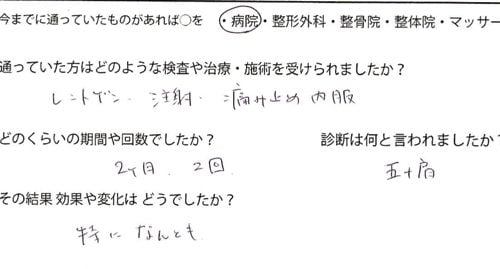 今までに通っていたものがあれば○を ・病院・整形外科・整骨院・整体院・マッサー
通っていた方はどのような検査や治療・施術を受けられましたか？
レントゲン. 注射. 痛み止め内服
どのくらいの期間や回数でしたか？ 診断は何と言われましたか？
2ヶ月. 2回 五十肩
その結果 効果や変化は どうでしたか？
特に なんとも